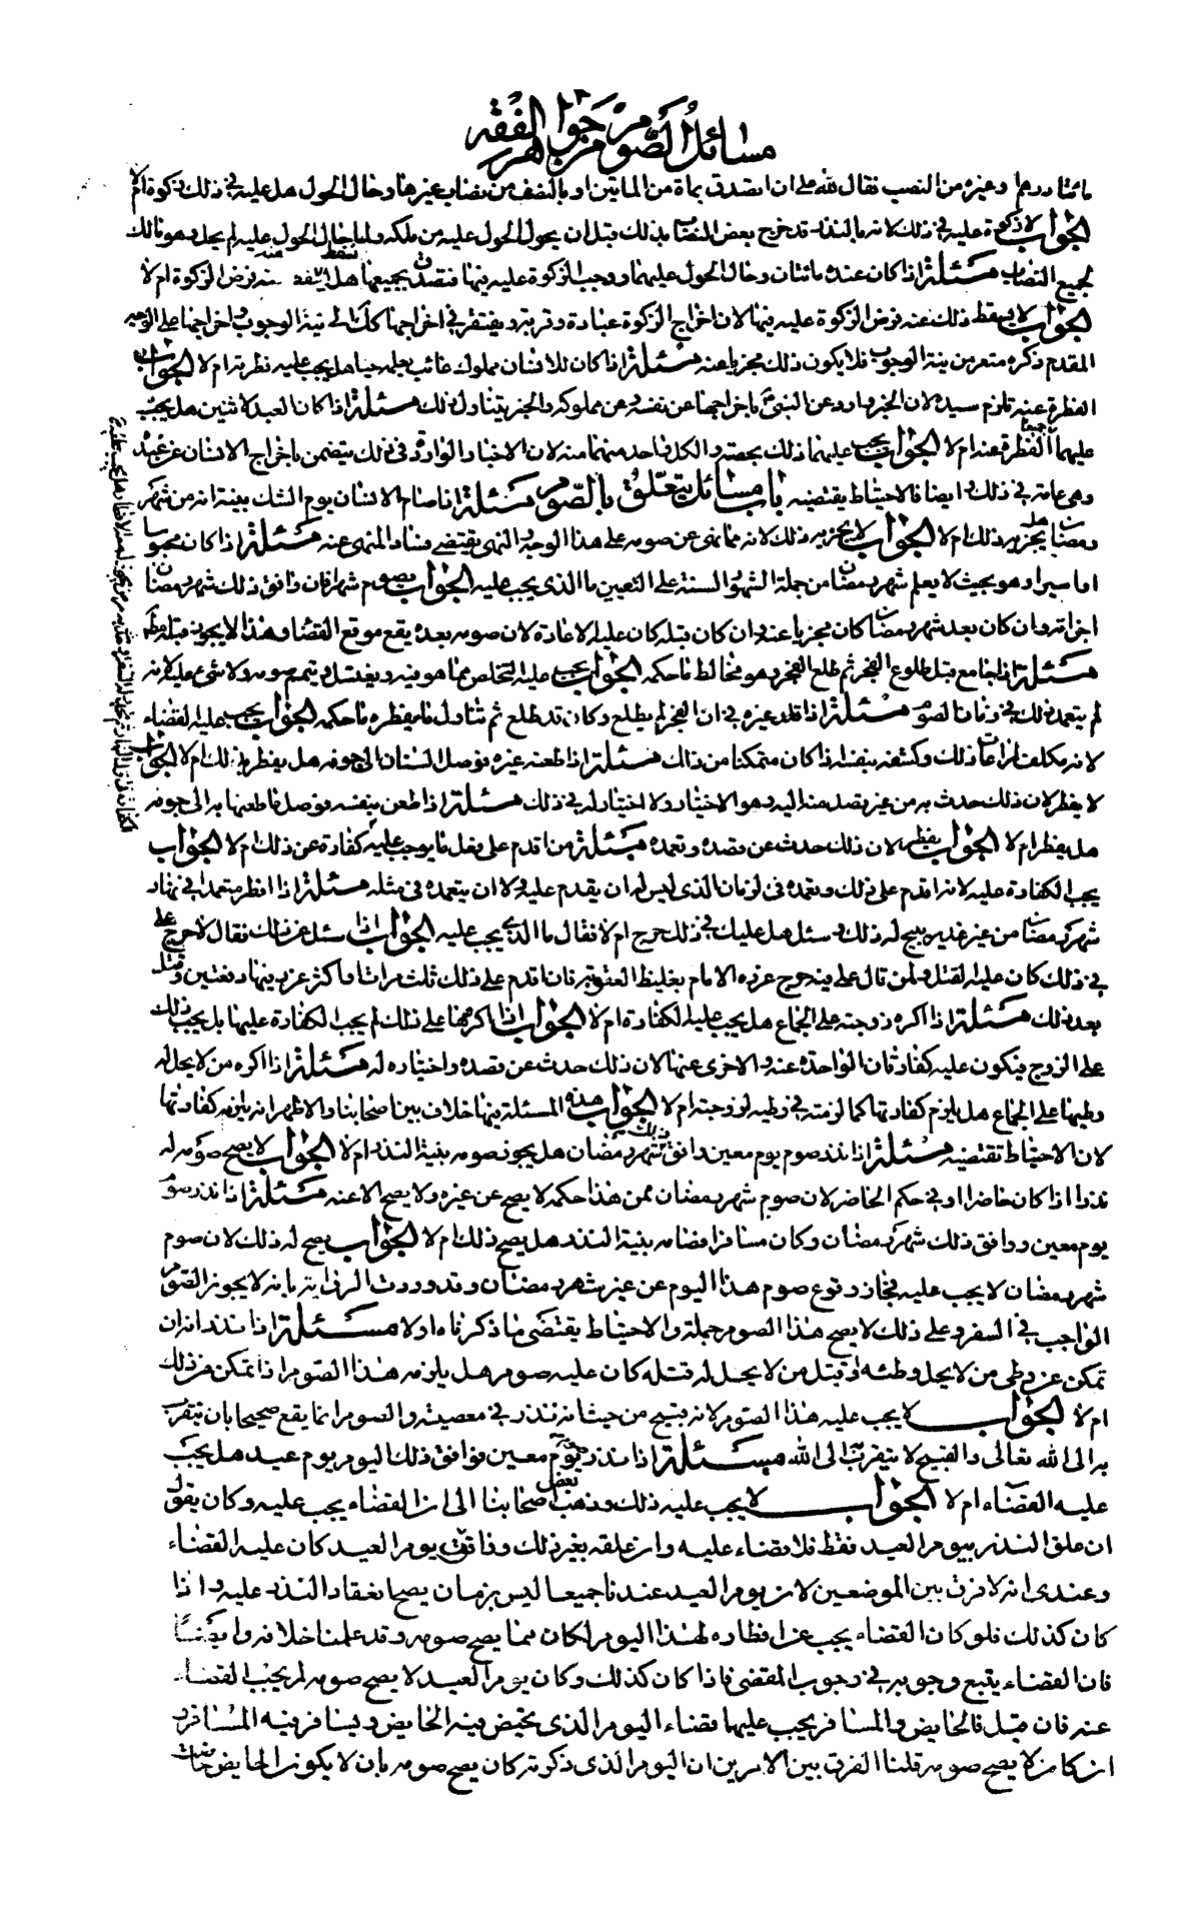 مسائل الصوم من جواهر الفقه
مائتا درهم وغيره من النصب فقال لله على ان اتصدق بماة من الماتين او بالنصف من نصاب غيرها وحال الحول هل عليه في ذلك زكوة ام لا
الجواب لا زكوة عليه في ذلك لانه بالنذر قد خرج بعض النصاب بذلك قبل ان يحول الحول عليه من ملكه ولما حال الحول عليه لم يحل وهو مالك
لجميع النصاب مسئلة اذا كان عنده مائتان وحال الحول عليهما ووجب الزكوة عليه فيها فتصدق بجميعها هل يسقط عنه فرض الزكوة ام لا
الجواب لا يسقط ذلك عنه فرض الزكوة عليه فيها لان اخراج الزكوة عبادة وقربة ويفتقر في اخراجها كك الى نية الوجوب واخراجها على الوجه
المقدم ذكره متعر من نية الوجوب فلا يكون ذلك مجزيا عنه مسئلة اذا كان للانسان مملوك غائب يعلم حياته هل يجب عليه فطرته ام لا الجواب
الفطرة عنه تلزم سيده لان الخبر وارد عن النبي باخراجها عن نفسه وعن مملوكه والخبر يتناول ذلك مسئلة اذا كان العبد لاثنين هل يجب
عليهما جميعا الفطرة عنه ام لا الجواب يجب عليهما ذلك بحصته ولكل واحد منهما منه لان الاخبار الواردة في ذلك يتضمن باخراج الانسان عن عبده
وهي عامة في ذلك وايضا فالاحتياط يقتضيه باب مسائل يتعلق بالصوم مسئلة اذا صام الانسان يوم الشك بنية انه من شهر
رمضان هل يجزيه ذلك ام لا الجواب لا يجزيه ذلك لانه مما نهي عن صومه على هذا الوجه والنهي يقتضي فساد المنهى عنه مسئلة اذا كان محبوسا
او اسيرا وهو بحيث لا يعلم شهر رمضان من جملة الشهور السنة على التعيين ما الذي يجب عليه الجواب يصوم شهرا فان وافق ذلك شهر رمضان
اجزاه وان كان بعد شهر رمضان كان مجزيا عنه وان كان قبله كان عليه الاعادة لان صومه بعده يقع موقع القضاء وهذا لا يجوز قبله
مسئلة اذا جامع قبل طلوع الفجر ثم طلع الفجر وهو مخالط ما حكمه الجواب يجب عليه التخلص مما هو فيه ويغتسل ويتمم صومه ولا شئ عليه لانه
لم يتعمد ذلك في زمان الصوم مسئلة اذا قلد غيره في ان الفجر لم يطلع وكان قد طلع ثم تناول ما يفطره ما حكمه الجواب يجب عليه القضاء
لانه مكلف لمراعات ذلك وكشفه بنفسه اذا كان متمكنا من ذلك مسئلة اذا طعنه غيره فوصل السنان الى جوفه هل يفطر بذلك ام لا الجواب
لا يفطر لان ذلك حدث به من غير قصد منه اليه وهو الاختيار ولا اختيار له في ذلك مسئلة اذا طعن بنفسه فوصل ما طعنها به الى جوفه
هل يفطر ام لا الجواب يفطر لان ذلك حدث عن قصده وتعمده مسئلة من اقدم على فعل ما يوجب عليه كفارة عن ذلك ام لا الجواب
يجب الكفارة عليه لانه اقدم على ذلك وتعمده في زمان الذي ليس له ان يقدم عليه ولا ان يتعمده في مثله مسئلة اذا افطر متعمدا في نهار
شهر رمضان من غير عذر يبيح له ذلك وسئل هل عليك في ذلك حرج ام لا فقال ما الذي يجب عليه الجواب اذا سئل عن ذلك فقال لا حرج على
في ذلك كان عليه القتل ولمن قال على فيه حرج عزره الامام بغليظ العقوبة فان اقدم على ذلك ثلث مرات فاكثر عزر فيها دفعتين وقتل
بعد ذلك مسئلة اذا اكره زوجته على الجماع هل يجب عليه الكفارة ام لا الجواب اذا اكرهها على ذلك لم يجب الكفارة عليها بل يجب ذلك
على الزوج فيكون عليه كفارتان الواحدة عنه والاخرى عنها لان ذلك حدث عن قصده واختياره له مسئلة اذا اكره من لا يحل له
وطيها على الجماع هل يلزم كفارتها كما لزمته في وطيه لزوجته ام لا الجواب هذه المسئلة فيها خلاف بين اصحابنا والاظهر انه يلزمه كفارتها
لان الاحتياط تقتضيه مسئلة اذا نذر صوم يوم معين ووافق ذلك شهر رمضان هل يجوز صومه بنية النذر ام لا الجواب لا يصح صومه له
نذرا اذا كان حاضرا او في حكم الحاضر لان صوم شهر رمضان ممن هذا حكمه لا يصح عن غيره ولا يصح الا عنه مسئلة اذا نذر صوم
يوم معين ووافق ذلك شهر رمضان وكان مسافرا فصامه بنية النذر هل يصح ذلك ام لا الجواب يصح له ذلك لان صوم
شهر رمضان لا يجب عليه فجاز وقوع صوم هذا اليوم عن غير شهر رمضان وقد وردت الرواية بانه لا يجوز الصوم
الواجب في السفر وعلى ذلك لا يصح هذا الصوم جملة والاحتياط يقتضى ما ذكرناه اولا مسئلة اذا نذر انه ان
تمكن عن وطى من لا يحل وطئه او قتل من لا يحل له قتله كان عليه صوم هل يلزمه هذا الصوم اذا تمكن من ذلك
ام لا الجواب لا يجب عليه هذا الصوم لانه قبيح من حيث انه نذر في معصية والصوم انما يقع صحيحا بان يتقرب
به الى الله تعالى والقبيح لا يتقرب به الى الله مسئلة اذا نذر صوم يوم معين فوافق ذلك اليوم يوم عيد هل يجب
عليه القضاء ام لا الجواب لا يجب عليه ذلك وذهب بعض اصحابنا الى ان القضاء يجب عليه وكان يقول
ان علق النذر بيوم العيد فقط فلا قضاء عليه وان علقه بغير ذلك ووافق يوم العيد كان عليه القضاء
وعندى انه لا فرق بين الموضعين لان يوم العيد عندنا جميعا ليس بزمان يصح انعقاد النذر عليه واذا
كان كذلك فلو كان القضاء يجب عن افطاره لهذا اليوم لكان مما يصح صومه وقد علمنا خلافه وايضا
فان القضاء يتبع وجوبه في وجوب المقضى فاذا كان كذلك وكان يوم العيد لا يصح صومه لم يجب القضاء
عنه فان قيل فالحايض والمسافر يجب عليهما قضاء اليوم الذى تحيض فيه الحايض ويسافر فيه المسافر و
ان كان لا يصح صومه قلنا الفرق بين الامرين ان اليوم الذى ذكرته كان يصح صومه بان لا يكون الحايض حاضت